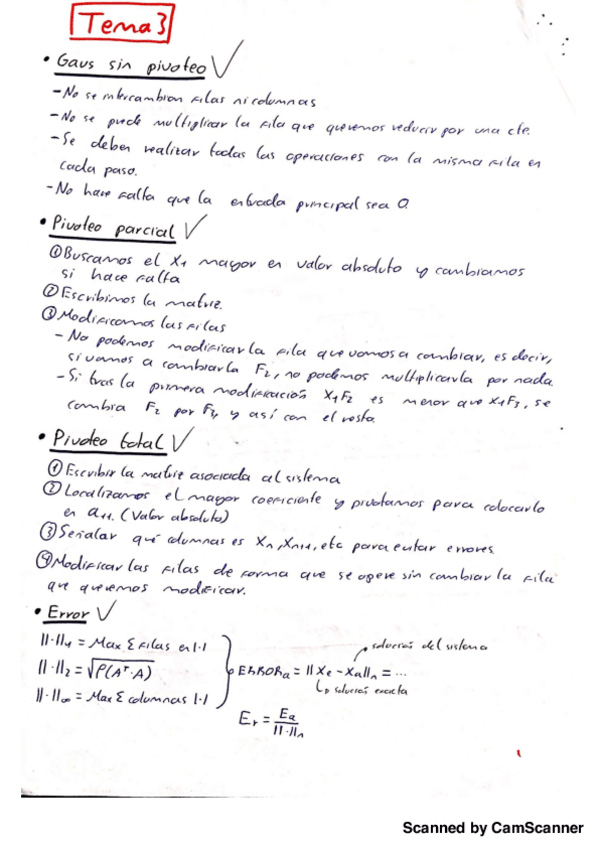 Tema 3
• Gaus sin pivoteo √
- No se intercambian filas ni columnas
- No se puede multiplicar la fila que queremos reducir por una cte.
- Se deben realizar todas las operaciones con la misma fila en
cada paso.
- No hace falta que la entrada principal sea 0
• Pivoteo parcial √
① Buscamos el X1 mayor en valor absoluto y cambiamos
si hace falta
② Escribimos la matriz.
③ Modificamos las filas
- No podemos modificar la fila que vamos a cambiar, es decir,
si vamos a cambiar la F2, no podemos multiplicarla por nada.
- Si tras la primera modificación X1F2 es menor que X1F3, se
cambia F2 por F3, y así con el resto.
• Pivoteo total √
① Escribir la matriz asociada al sistema
② Localizamos el mayor coeficiente y pivotamos para colocarlo
en a11. (Valor absoluto)
③ Señalar qué columnas es Xn, Xn+1, etc para evitar errores.
④ Modificar las filas de forma que se opere sin cambiar la fila
que queremos modificar.
• Error √
||·||1 = Max Σ filas en |·|
||·||2 = √ρ(Aᵀ·A)
||·||∞ = Max Σ columnas |·|
solución del sistema
ERRORa = ||Xe - Xa||n = ...
solución exacta
Er = Ea / ||·||n
Scanned by CamScanner